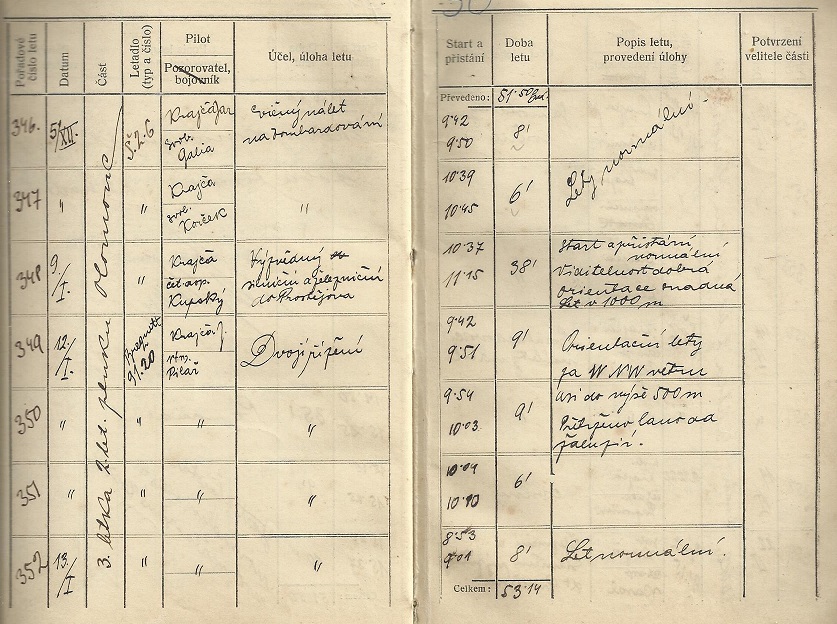 Pořadové číslo letu
Datum
Část
Letadlo (typ a číslo)
Pilot
Pozorovatel, bojovník
Účel, úloha letu
346.
5/XII.
3. letka 2. let. pluku Olomouc
Š.2.6
Krajča Jar
svob. Galia
Cvičný nálet
na bombardování
347
"
"
Krajča
svob.
Korček
"
348
9./I.
"
Krajča
čet. asp.
Kupský
Výzvědný
silniční a železniční
do Prostějova
349
12./I.
Breguett
9/.20
Krajča J.
rtm.
Pilař
Dvojí řízení
350
"
"
"
"
351
"
"
"
"
352
13./I
"
"
"
30
Start a přistání
Doba letu
Popis letu,
provedení úlohy
Potvrzení
velitele části
Převedeno:
51·50
9·42
9·50
8'
Lety normální.
10·39
10·45
6'
10·37
11·15
38'
Start a přistání
normální
Viditelnost dobrá
orientace snadná
Let v 1000 m
9·42
9·51
9'
Orientační lety
za WNW větru
9·54
10·03
9'
asi do výše 500 m
Přetrženo lano od
žaluzií.
10·04
10·10
6'
8·53
9·01
8'
Let normální.
Celkem:
53·14